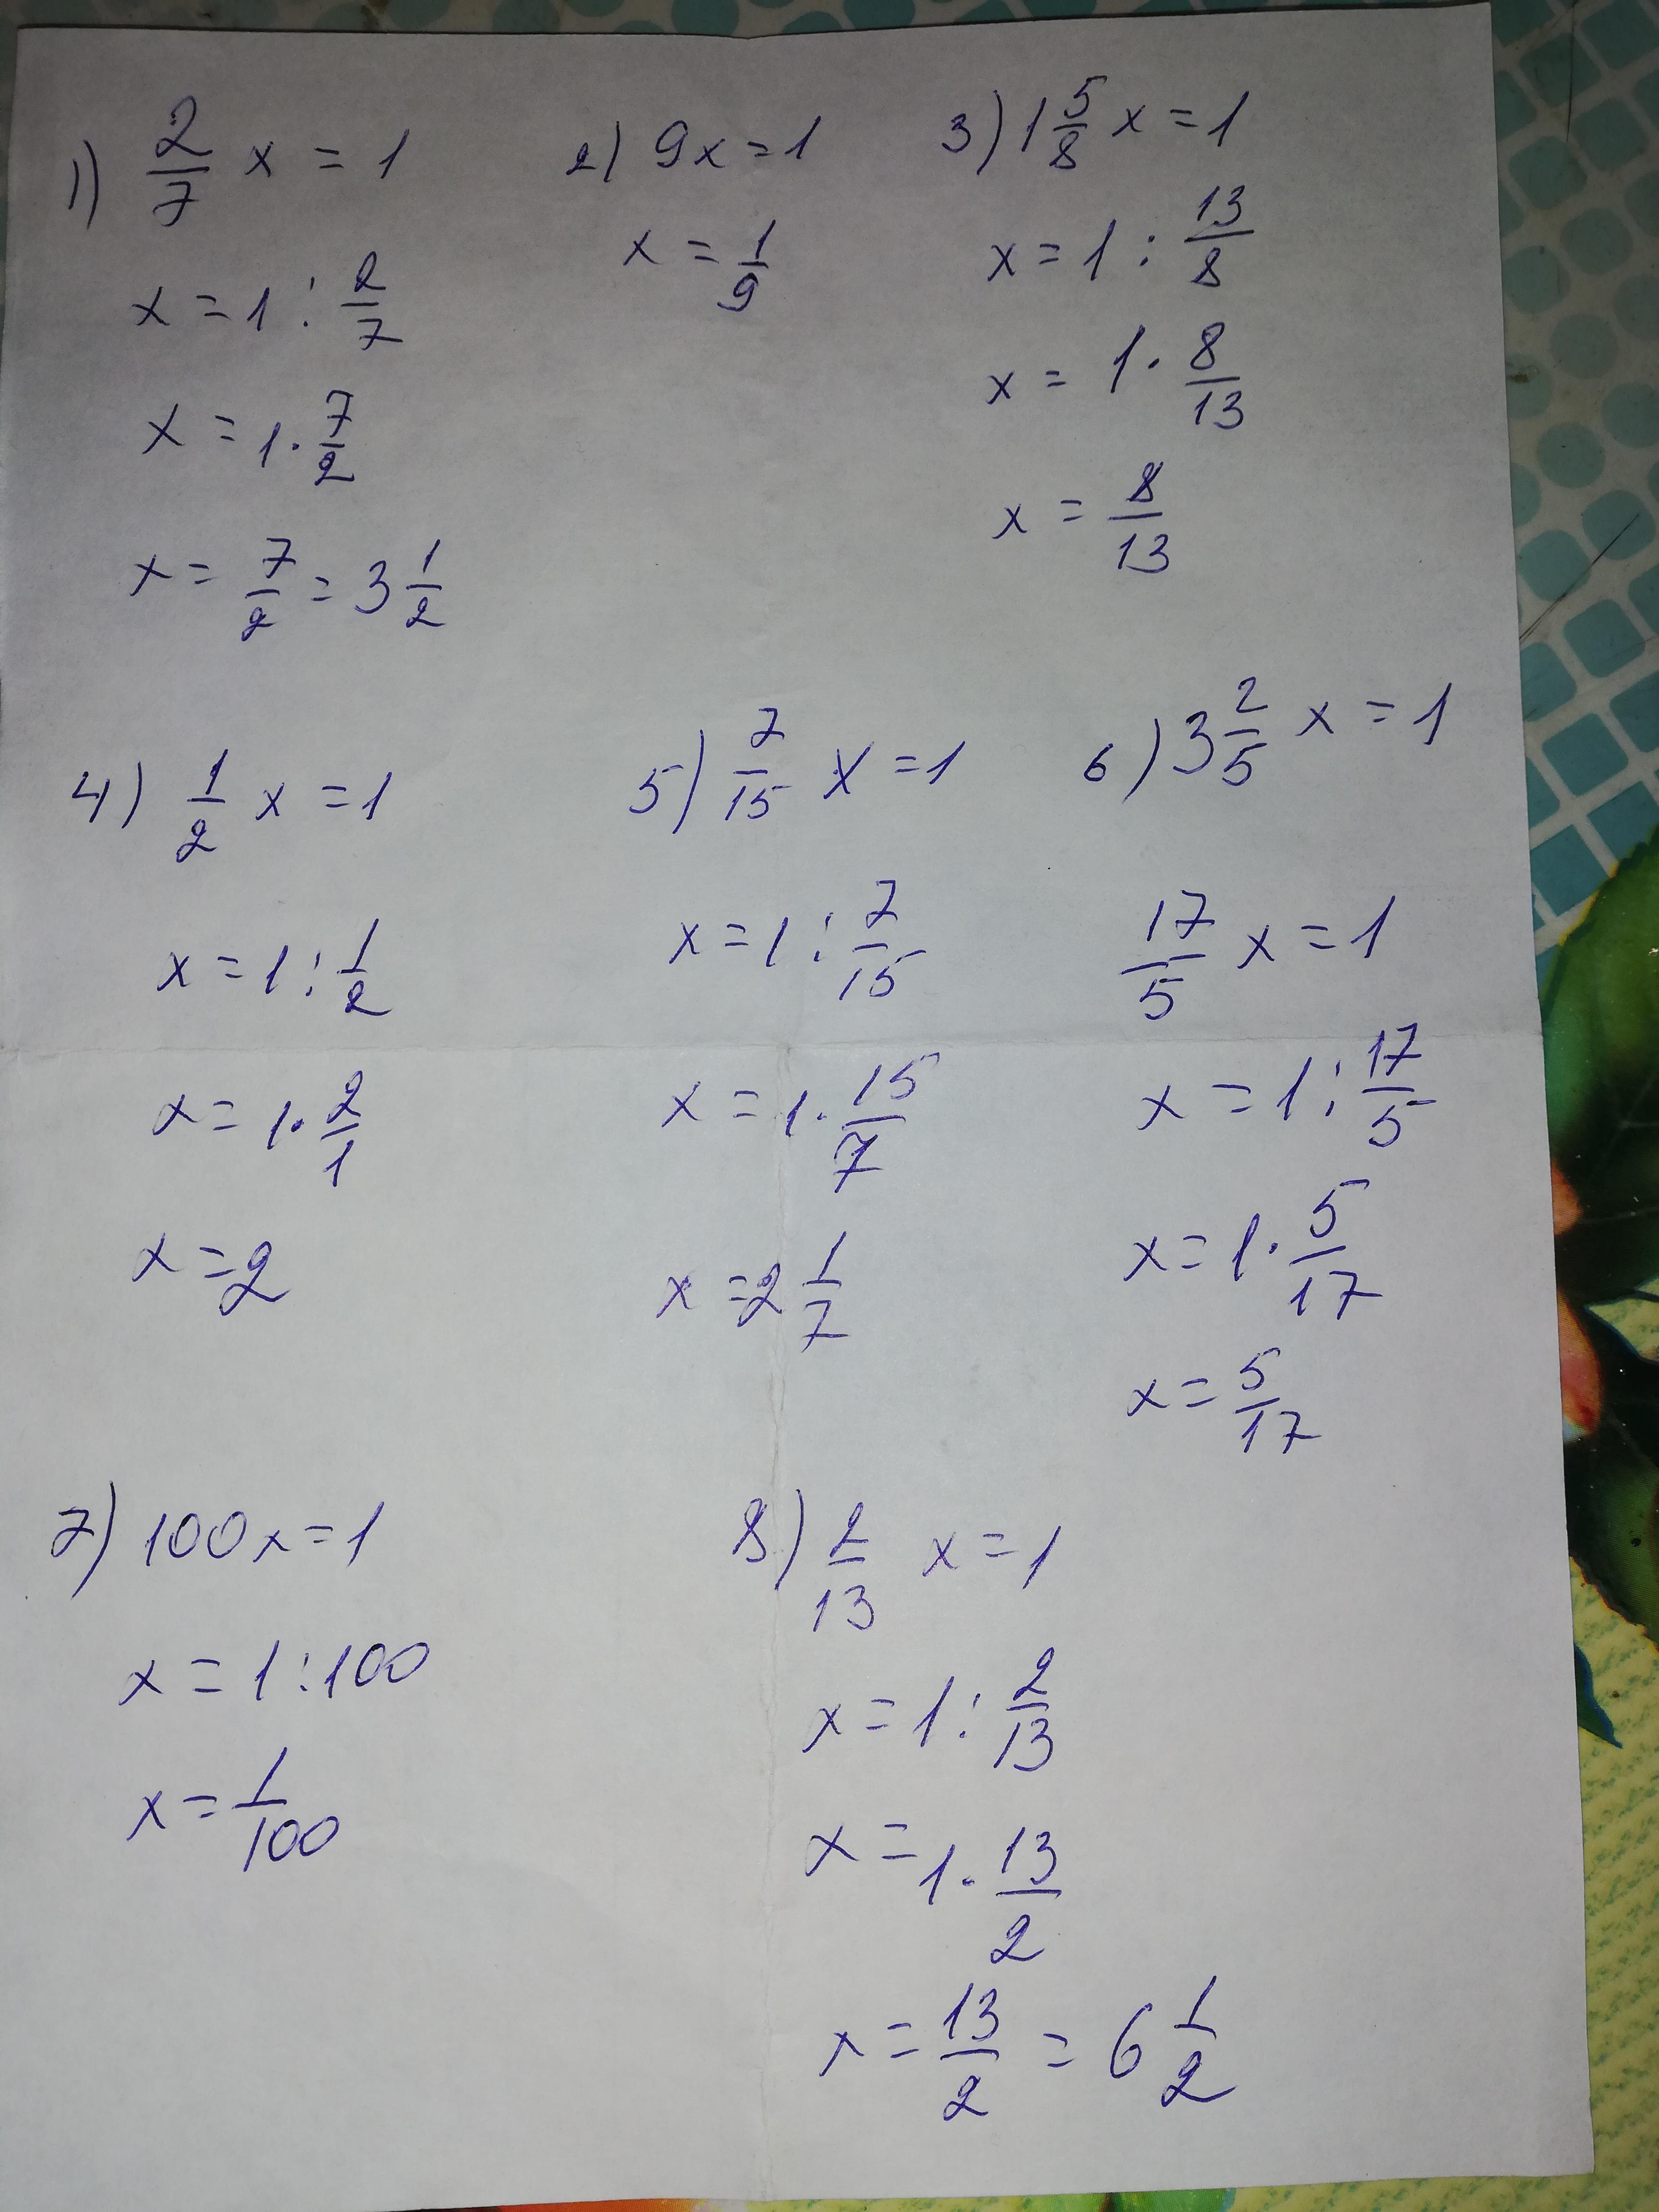 1) 2/7 x = 1
x = 1 : 2/7
x = 1 · 7/2
x = 7/2 = 3 1/2
2) 9x = 1
x = 1/9
3) 1 5/8 x = 1
x = 1 : 13/8
x = 1 · 8/13
x = 8/13
4) 1/2 x = 1
x = 1 : 1/2
x = 1 · 2/1
x = 2
5) 7/15 x = 1
x = 1 : 7/15
x = 1 · 15/7
x = 2 1/7
6) 3 2/5 x = 1
17/5 x = 1
x = 1 : 17/5
x = 1 · 5/17
x = 5/17
7) 100x = 1
x = 1 : 100
x = 1/100
8) 2/13 x = 1
x = 1 : 2/13
x = 1 · 13/2
x = 13/2 = 6 1/2